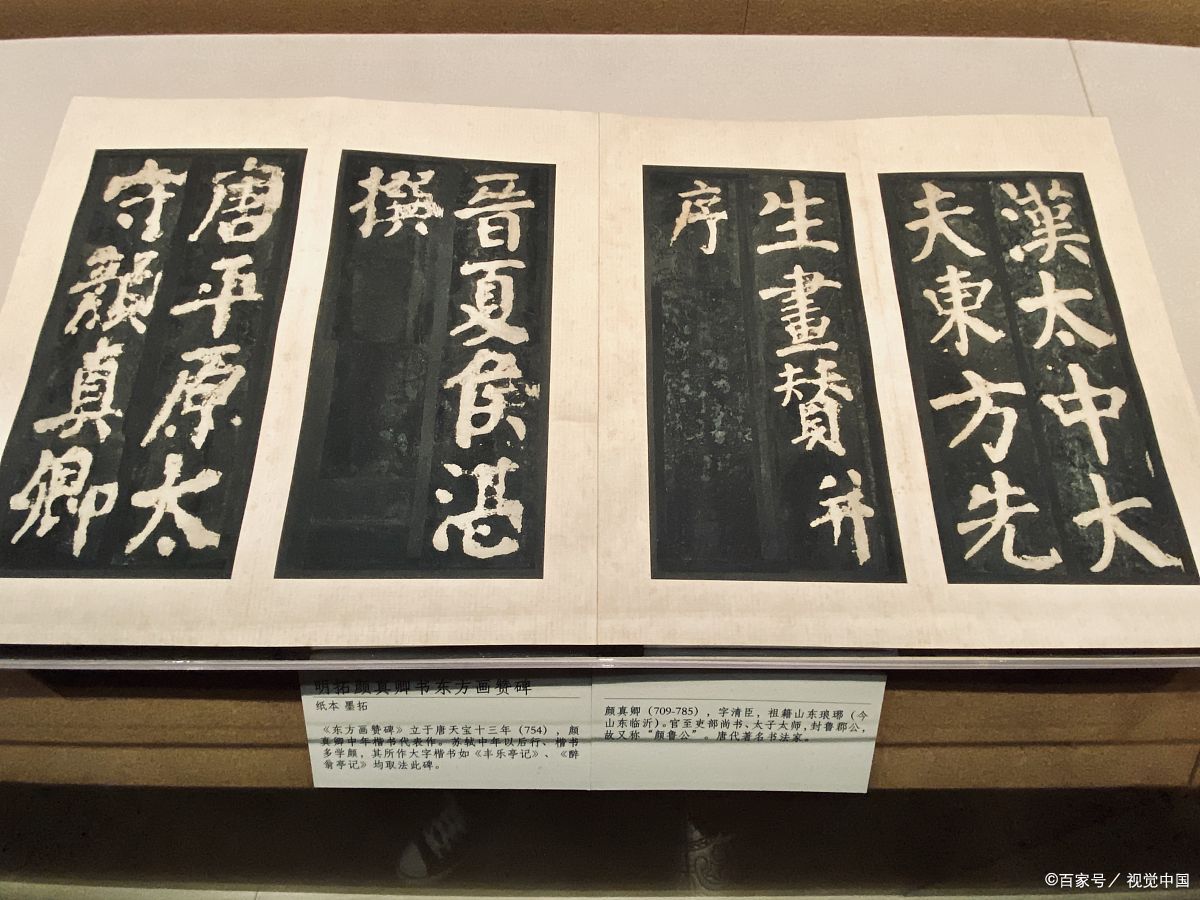 漢太中大
夫東方先
生畫贊并
序
晉夏侯湛
撰
唐平原太
守顏真卿
明拓颜真卿书东方画赞碑
纸本 墨拓
《东方画赞碑》立于唐天宝十三年（754），颜
真卿中年楷书代表作。苏轼中年以后行、楷书
多学颜，其所作大字楷书如《丰乐亭记》、《醉
翁亭记》均取法此碑。
颜真卿（709-785），字清臣，祖籍山东琅琊（今
山东临沂）。官至吏部尚书、太子太师，封鲁郡公，
故又称“颜鲁公”。唐代著名书法家。
©百家号／视觉中国